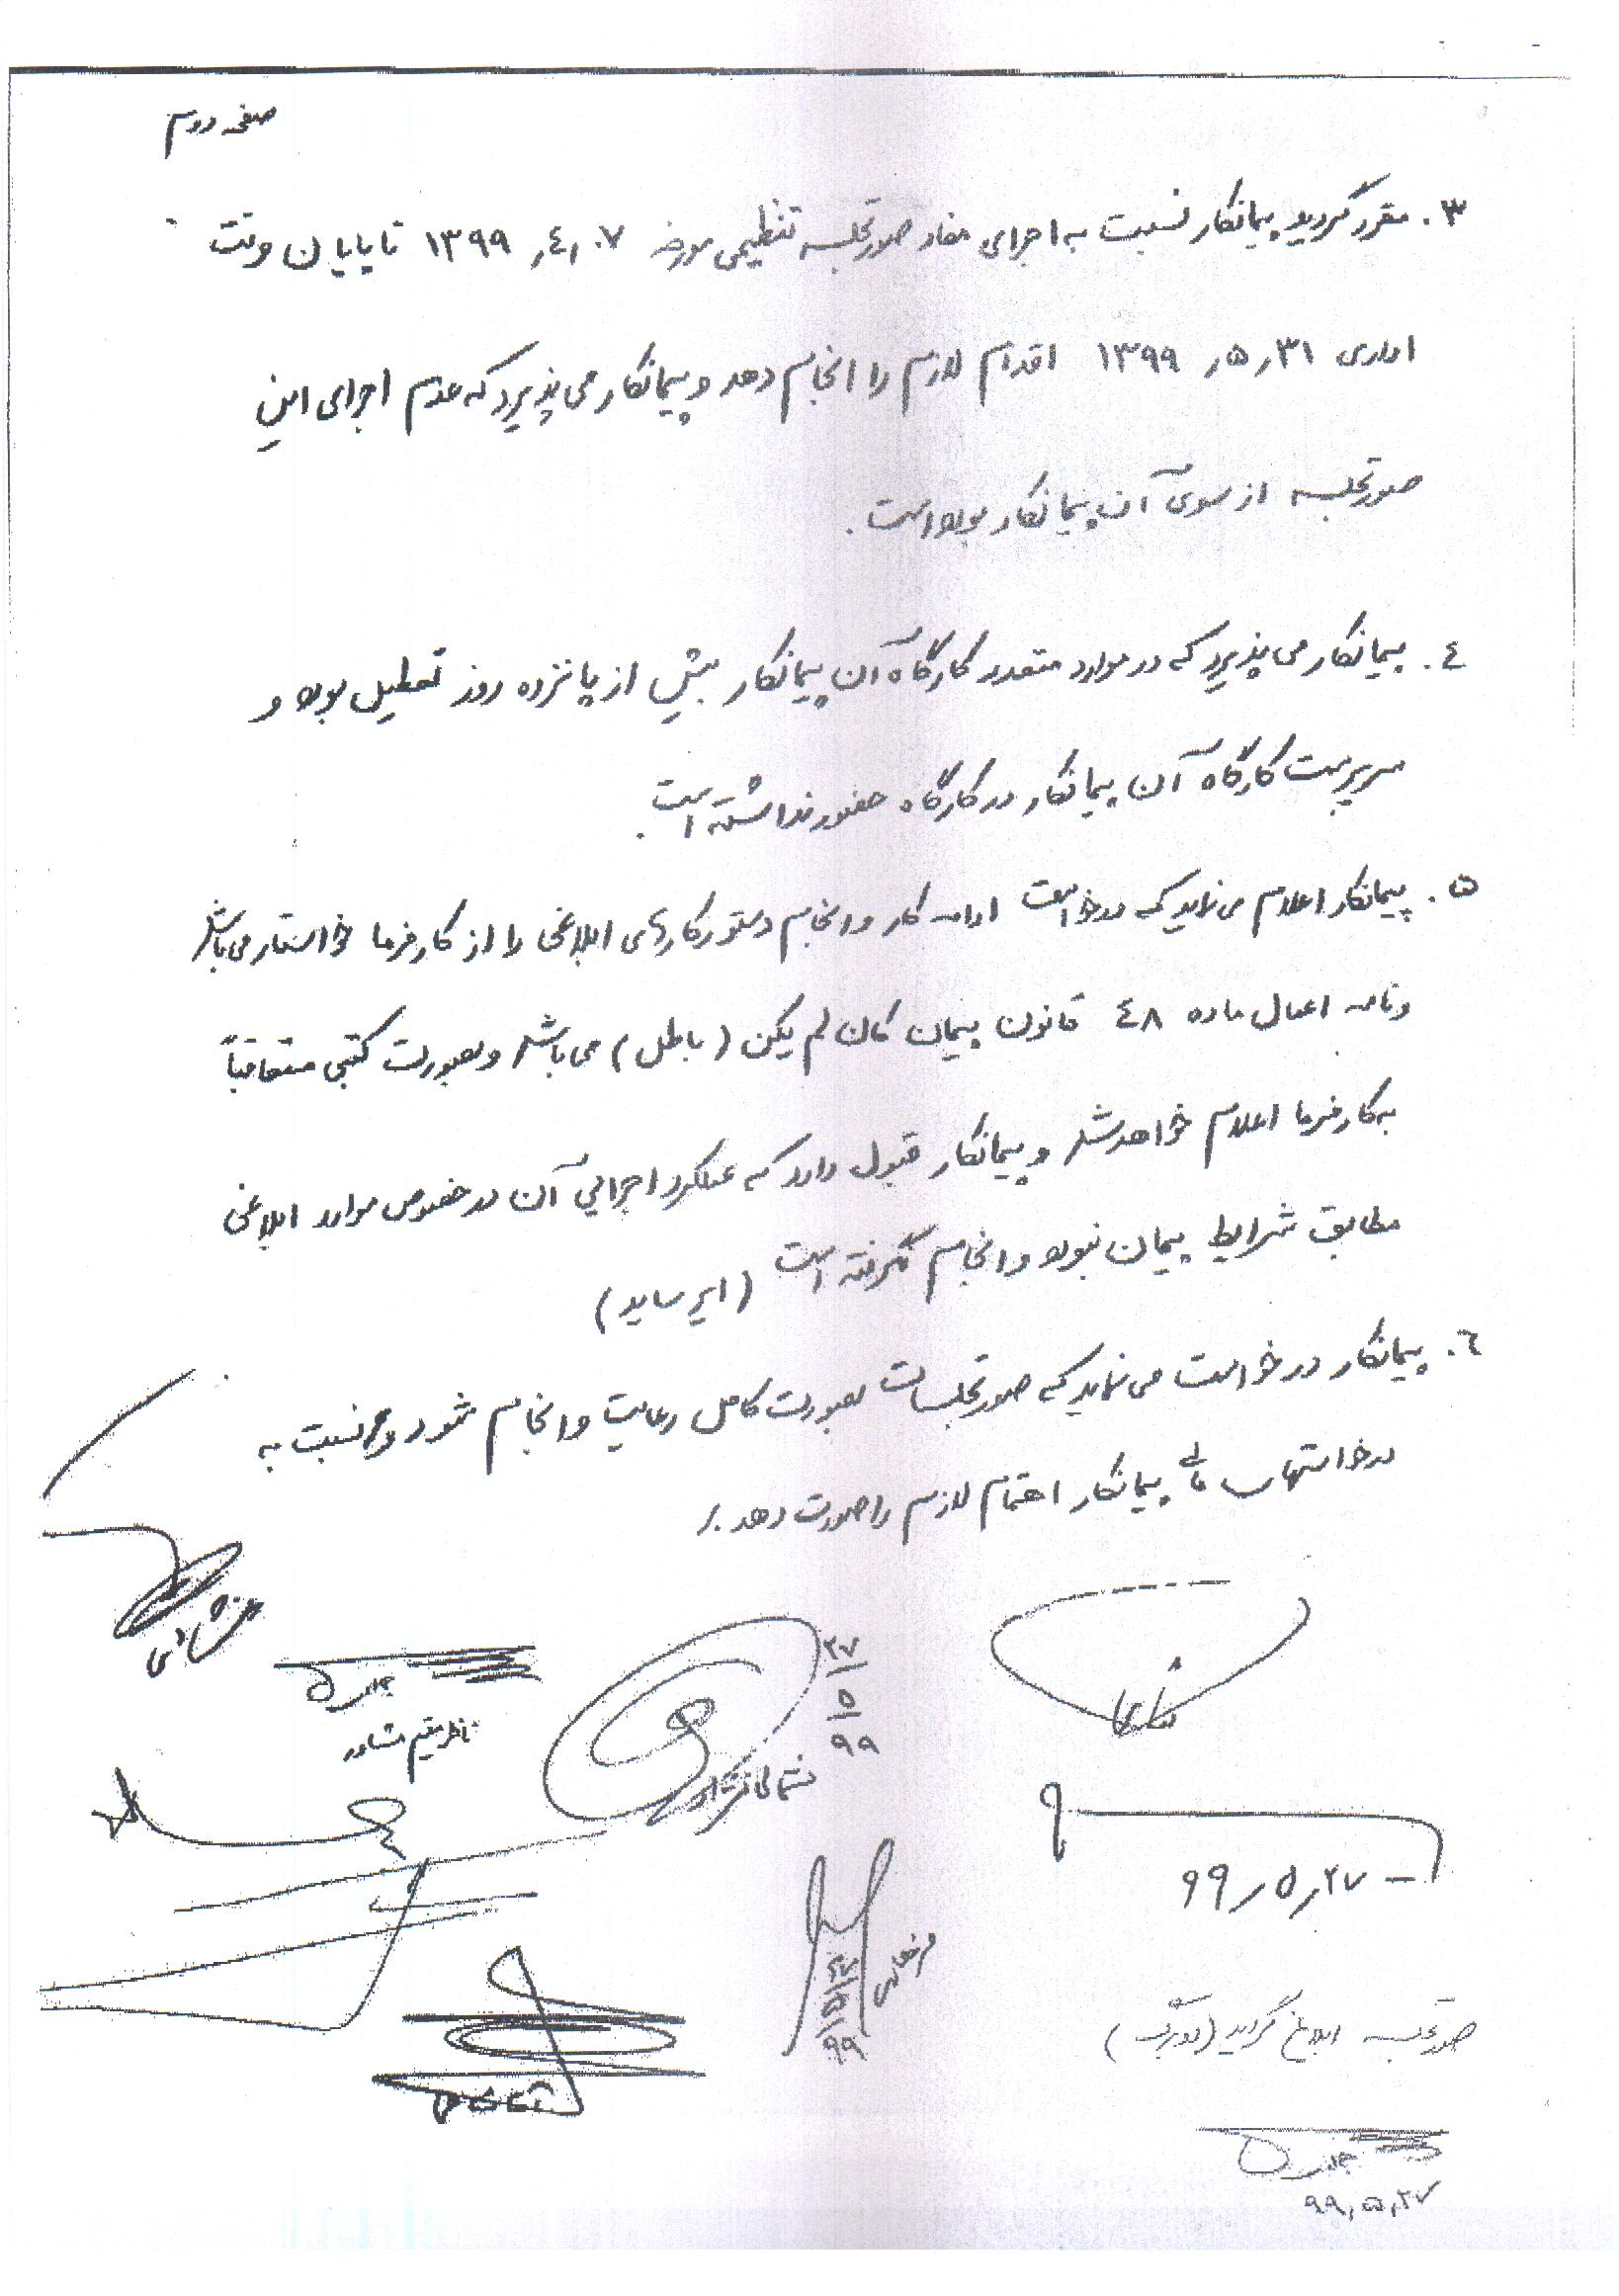 صفحه دوم
۳. مقرر گردید پیمانکار نسبت به اجرای مفاد صورتجلسه تنظیمی مورخه ۱۳۹۹٫۰۴٫۰۷ تا پایان وقت
اداری ۱۳۹۹٫۵٫۳۱ اقدام لازم را انجام دهد و پیمانکار می پذیرد که عدم اجرای این
صورتجلسه از سوی آن پیمانکار بوده است.
۴. پیمانکار می پذیرد که در موارد متعدد کارگاه آن پیمانکار بیش از پانزده روز تعطیل بوده و
سرپرست کارگاه آن پیمانکار در کارگاه حضور نداشته است.
۵. پیمانکار اعلام می نماید که درخواست ادامه کار و انجام دستور کارهای ابلاغی را از کارفرما خواستار می باشد
و نامه اعمال ماده ۴۸ قانون پیمان کان لم یکن (باطل) می باشد و بصورت کتبی متعاقباً
به کارفرما اعلام خواهد شد و پیمانکار قبول دارد که عملکرد اجرایی آن در خصوص موارد ابلاغی
مطابق شرایط پیمان نبوده و انجام نگرفته است (ایرساید)
۶. پیمانکار درخواست می نماید که صورتجلسات بصورت کامل رعایت و انجام شود و نسبت به
درخواستهای مالی پیمانکار اهتمام لازم را صورت دهد./
۲۷/۵/۹۹
ناظر مقیم مشاور
۹۹٫۵٫۲۷
۲۷/۵/۹۹
صورتجلسه ابلاغ گردید
۹۹٫۵٫۲۷